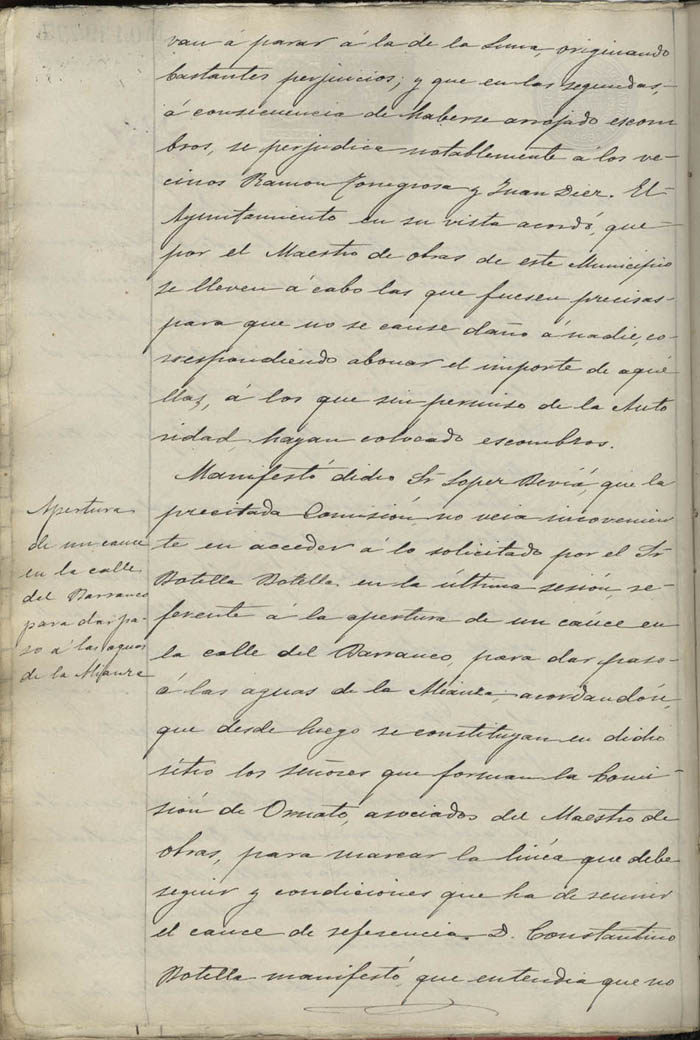 van á parar á la de la Luna, originando
bastantes perjuicios; y que en las segundas,
á consecuencia de haberse arrojado escom
bros, se perjudica notablemente á los ve-
cinos Ramon Torregrosa y Juan Deer. El
Ayuntamiento en su vista acordó, que
por el Maestro de obras de este Municipio
se lleven á cabo las que fuesen precisas
para que no se cause daño á nadie, co-
rrespondiendo abonar el importe de aque
llas, á los que sin permiso de la Auto
ridad, hayan colocado escombros.
Apertura
de un cauce
en la calle
del Barranco
para dar pa-
so á las aguas
de la
Manifestó dicho Sr Soper Beviá, que la
precitada Comisión no veia inconvenien
te en acceder á lo solicitado por el Sr
Botella Botella en la última sesión, re-
ferente á la apertura de un cauce en
la calle del Barranco, para dar paso
á las aguas de la acordandose,
que desde luego se constituyan en dicho
sitio los señores que forman la Comi-
sión de Ornato, asociados del Maestro de
obras, para marcar la linea que debe
seguir y condiciones que ha de reunir
el cauce de referencia. D. Constantino
Botella manifestó, que entendia que no